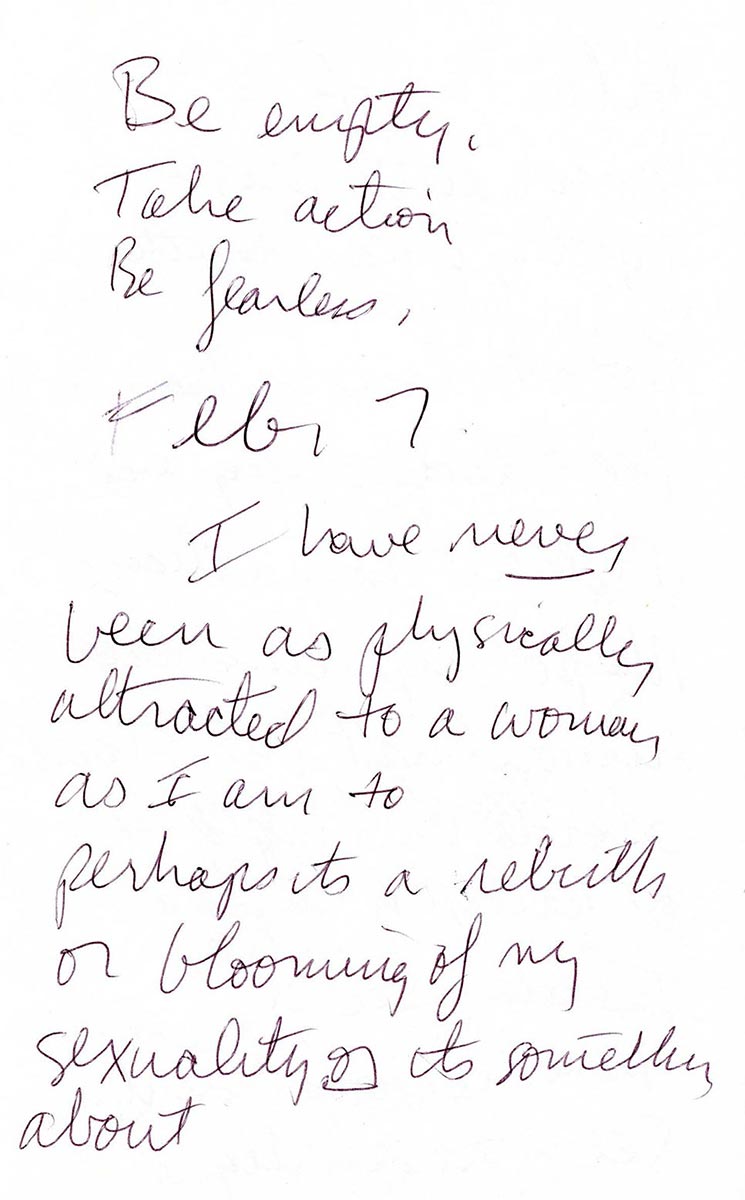 Be empty.
Take action
Be fearless.
Feb. 7.
I have never
been as physically
attracted to a woman
as I am to
perhaps its a rebirth
or blooming of my
sexuality or its something
about